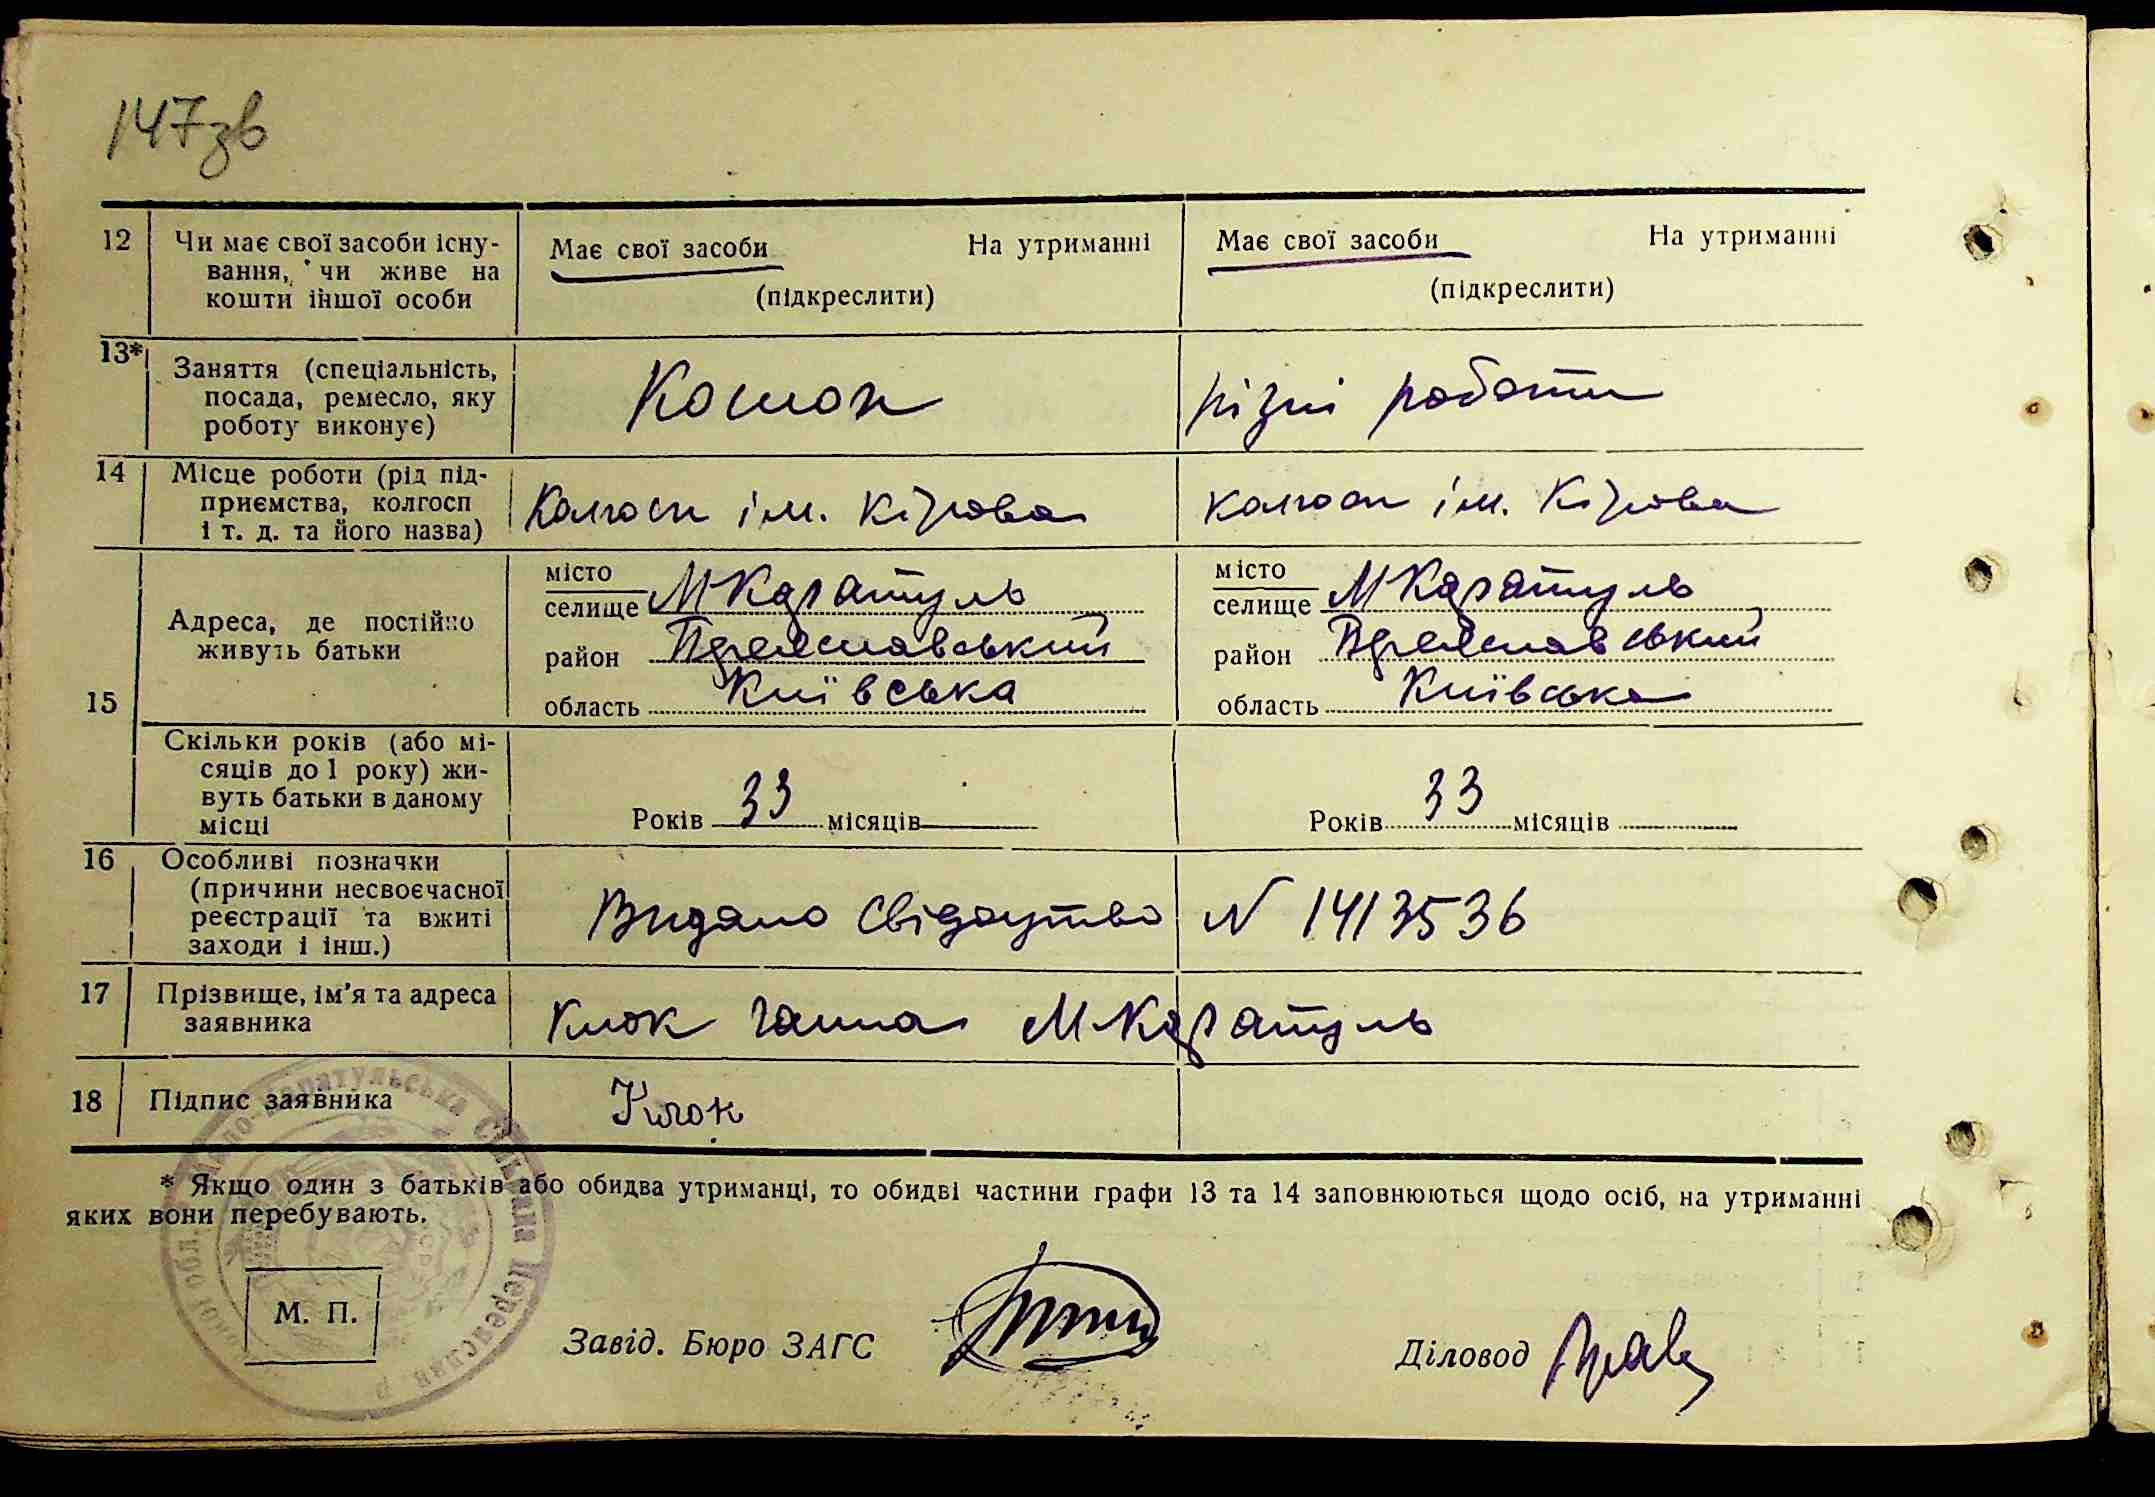 147зв
12 Чи має свої засоби існу- Має свої засоби На утриманні Має свої засоби На утриманні
вання, чи живе на
кошти іншої особи (підкреслити) (підкреслити)
13* Заняття (спеціальність,
посада, ремесло, яку Конюх різні роботи
роботу виконує)
14 Місце роботи (рід під-
приємства, колгосп Колгосп ім. Кірова колгосп ім. Кірова
і т. д. та його назва)
15 Адреса, де постійно
живуть батьки
місто місто
селище МКаратуль селище МКаратуль
район Переяславський район Переяславський
область Київська область Київська
Скільки років (або мі-
сяців до 1 року) жи-
вуть батьки в даному
місці Років 33 місяців Років 33 місяців
16 Особливі позначки
(причини несвоєчасної
реєстрації та вжиті Видано свідоцтво N 1413536
заходи і інш.)
17 Прізвище, ім'я та адреса Клюк Ганна МКаратуль
заявника
18 Підпис заявника Клюк
* Якщо один з батьків або обидва утриманці, то обидві частини графи 13 та 14 заповнюються щодо осіб, на утриманні
яких вони перебувають.
М. П.
Завід. Бюро ЗАГС Діловод